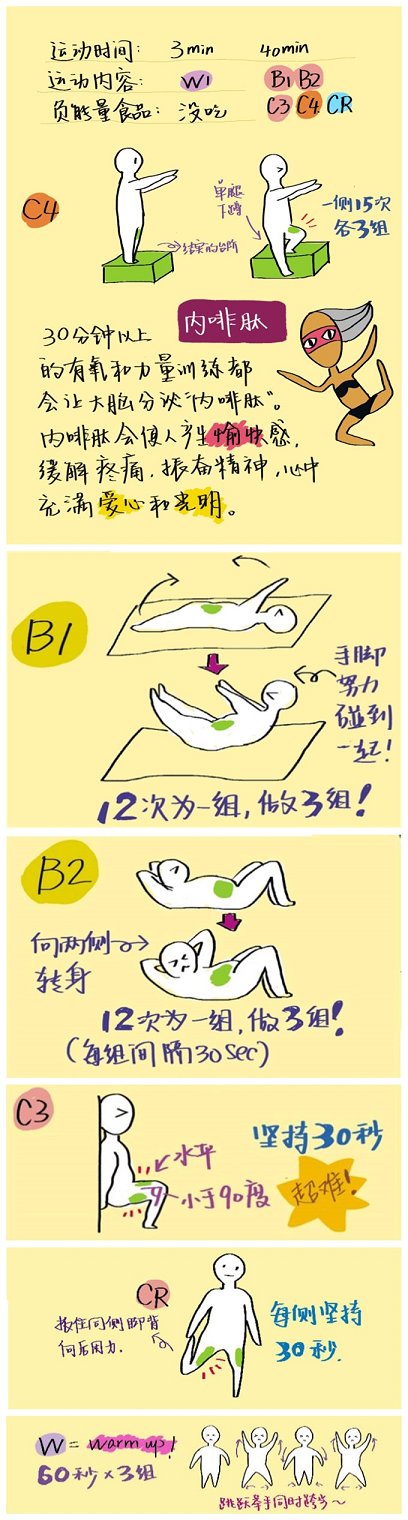 运动时间: 3min 40min
运动内容: W1 B1 B2
负能量食品: 没吃 C3 C4 CR
C4
单腿
下蹲
结实的台阶
一侧15次
各3组
内啡肽
30分钟以上
的有氧和力量训练都
会让大脑分泌“内啡肽”。
内啡肽会使人产生愉快感,
缓解疼痛,振奋精神,心中
充满爱心和光明。
B1
手脚
努力
碰到
一起!
12次为一组,做3组!
B2
向两侧
转身
12次为一组,做3组!
(每组间隔30sec)
C3
水平
小于90度
坚持30秒
超难!
CR
扳住同侧脚背
向后用力.
每侧坚持
30秒.
W = warm up!
60秒×3组
跳跃举手同时跨步~